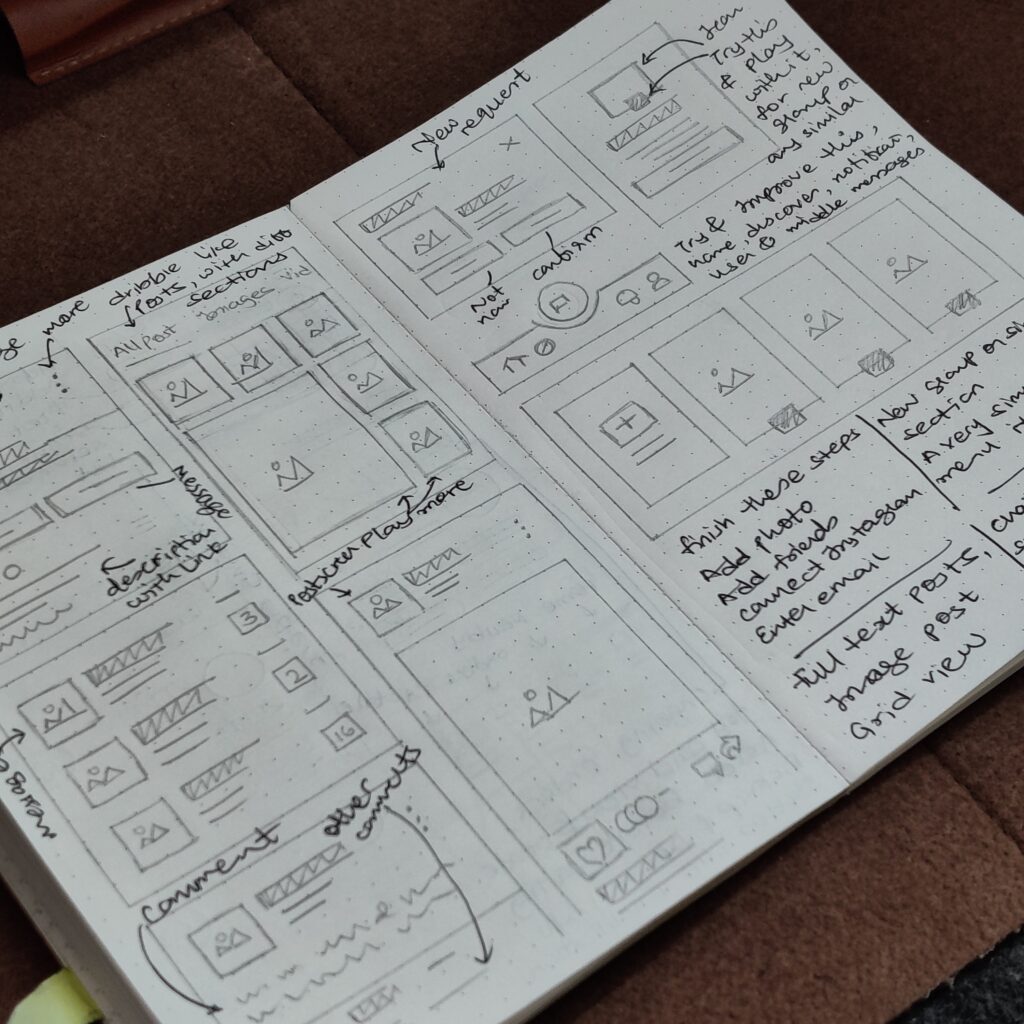 more dribble like
posts, with diff
sections
All Post Images Vid
Message
description
with Link
Post screen Play more
3
2
16
message
comment
other
comments
New request
Not
now
confirm
Try this
& Play
with it,
for new
group or
any similar
Try & improve this,
name, discover, notificati,
user & middle messages
finish these steps
Add photo
Add friends
connect Instagram
Enter email
New group or
section
A very
menu
Full text posts,
Image post
Grid view